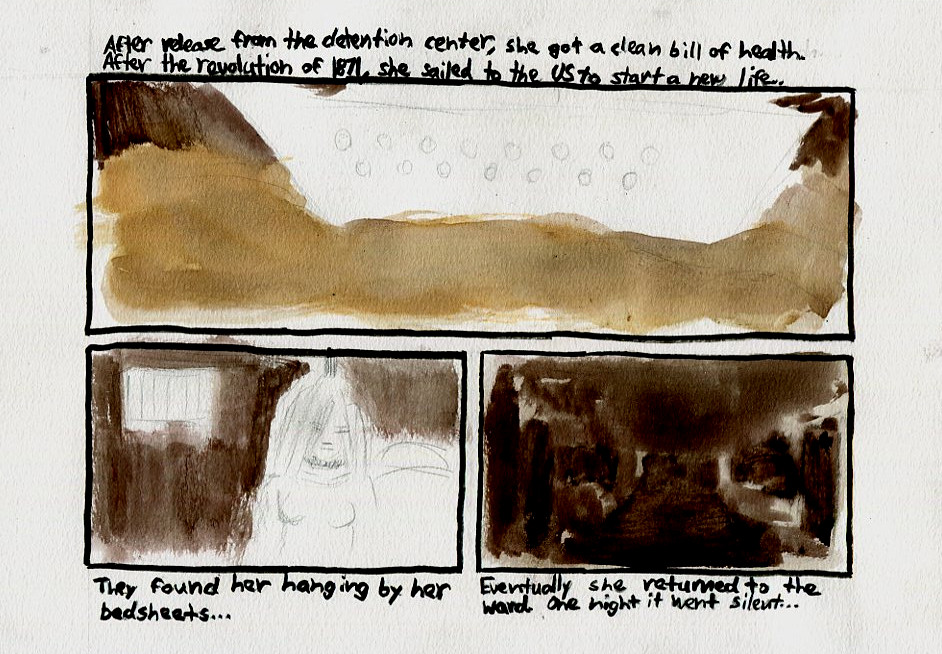 After release from the detention center, she got a clean bill of health.
After the revolution of 1871, she sailed to the US to start a new life.
They found her hanging by her
bedsheets...
Eventually she returned to the
ward. One night it went silent...